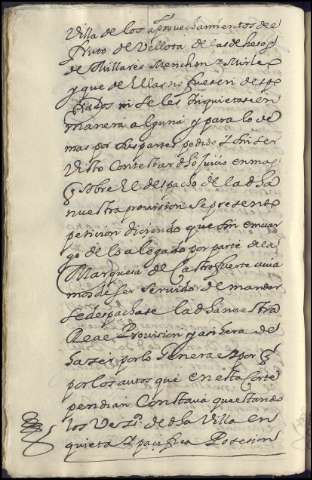 Villa de los aprovechamientos de el
fruto de Vellota de las dehesas
de Millares Menchon y Mirla
y que de ellas no fuesen despo
jados ni se les inquietase en
manera alguna y para lo de
mas por sus partes pedido y sin ser
visto contestar dho juicio en mas
q sobre el despacho de la dha
nuestra provision se presento
peticion diciendo que sin embar
go de lo alegado por parte de la
Marquesa de Castrofuerte avia
mos de ser servido de mandar
se despachase la dha nuestra
Real Provision y asi hera de
hazer por lo general y por q
por los autos que en esta Corte
pendian Constava que estando
los Vezs. de dha Villa en
quieta y pacifica Posesion